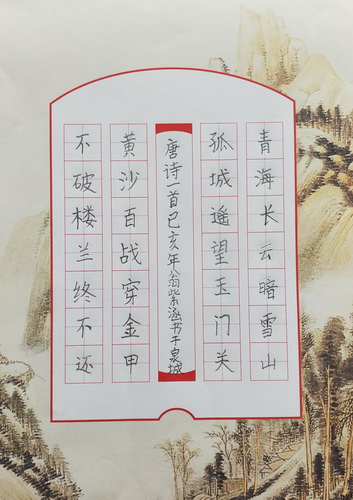 青海长云暗雪山
孤城遥望玉门关
唐诗一首己亥年翁紫涵书于泉城
黄沙百战穿金甲
不破楼兰终不还